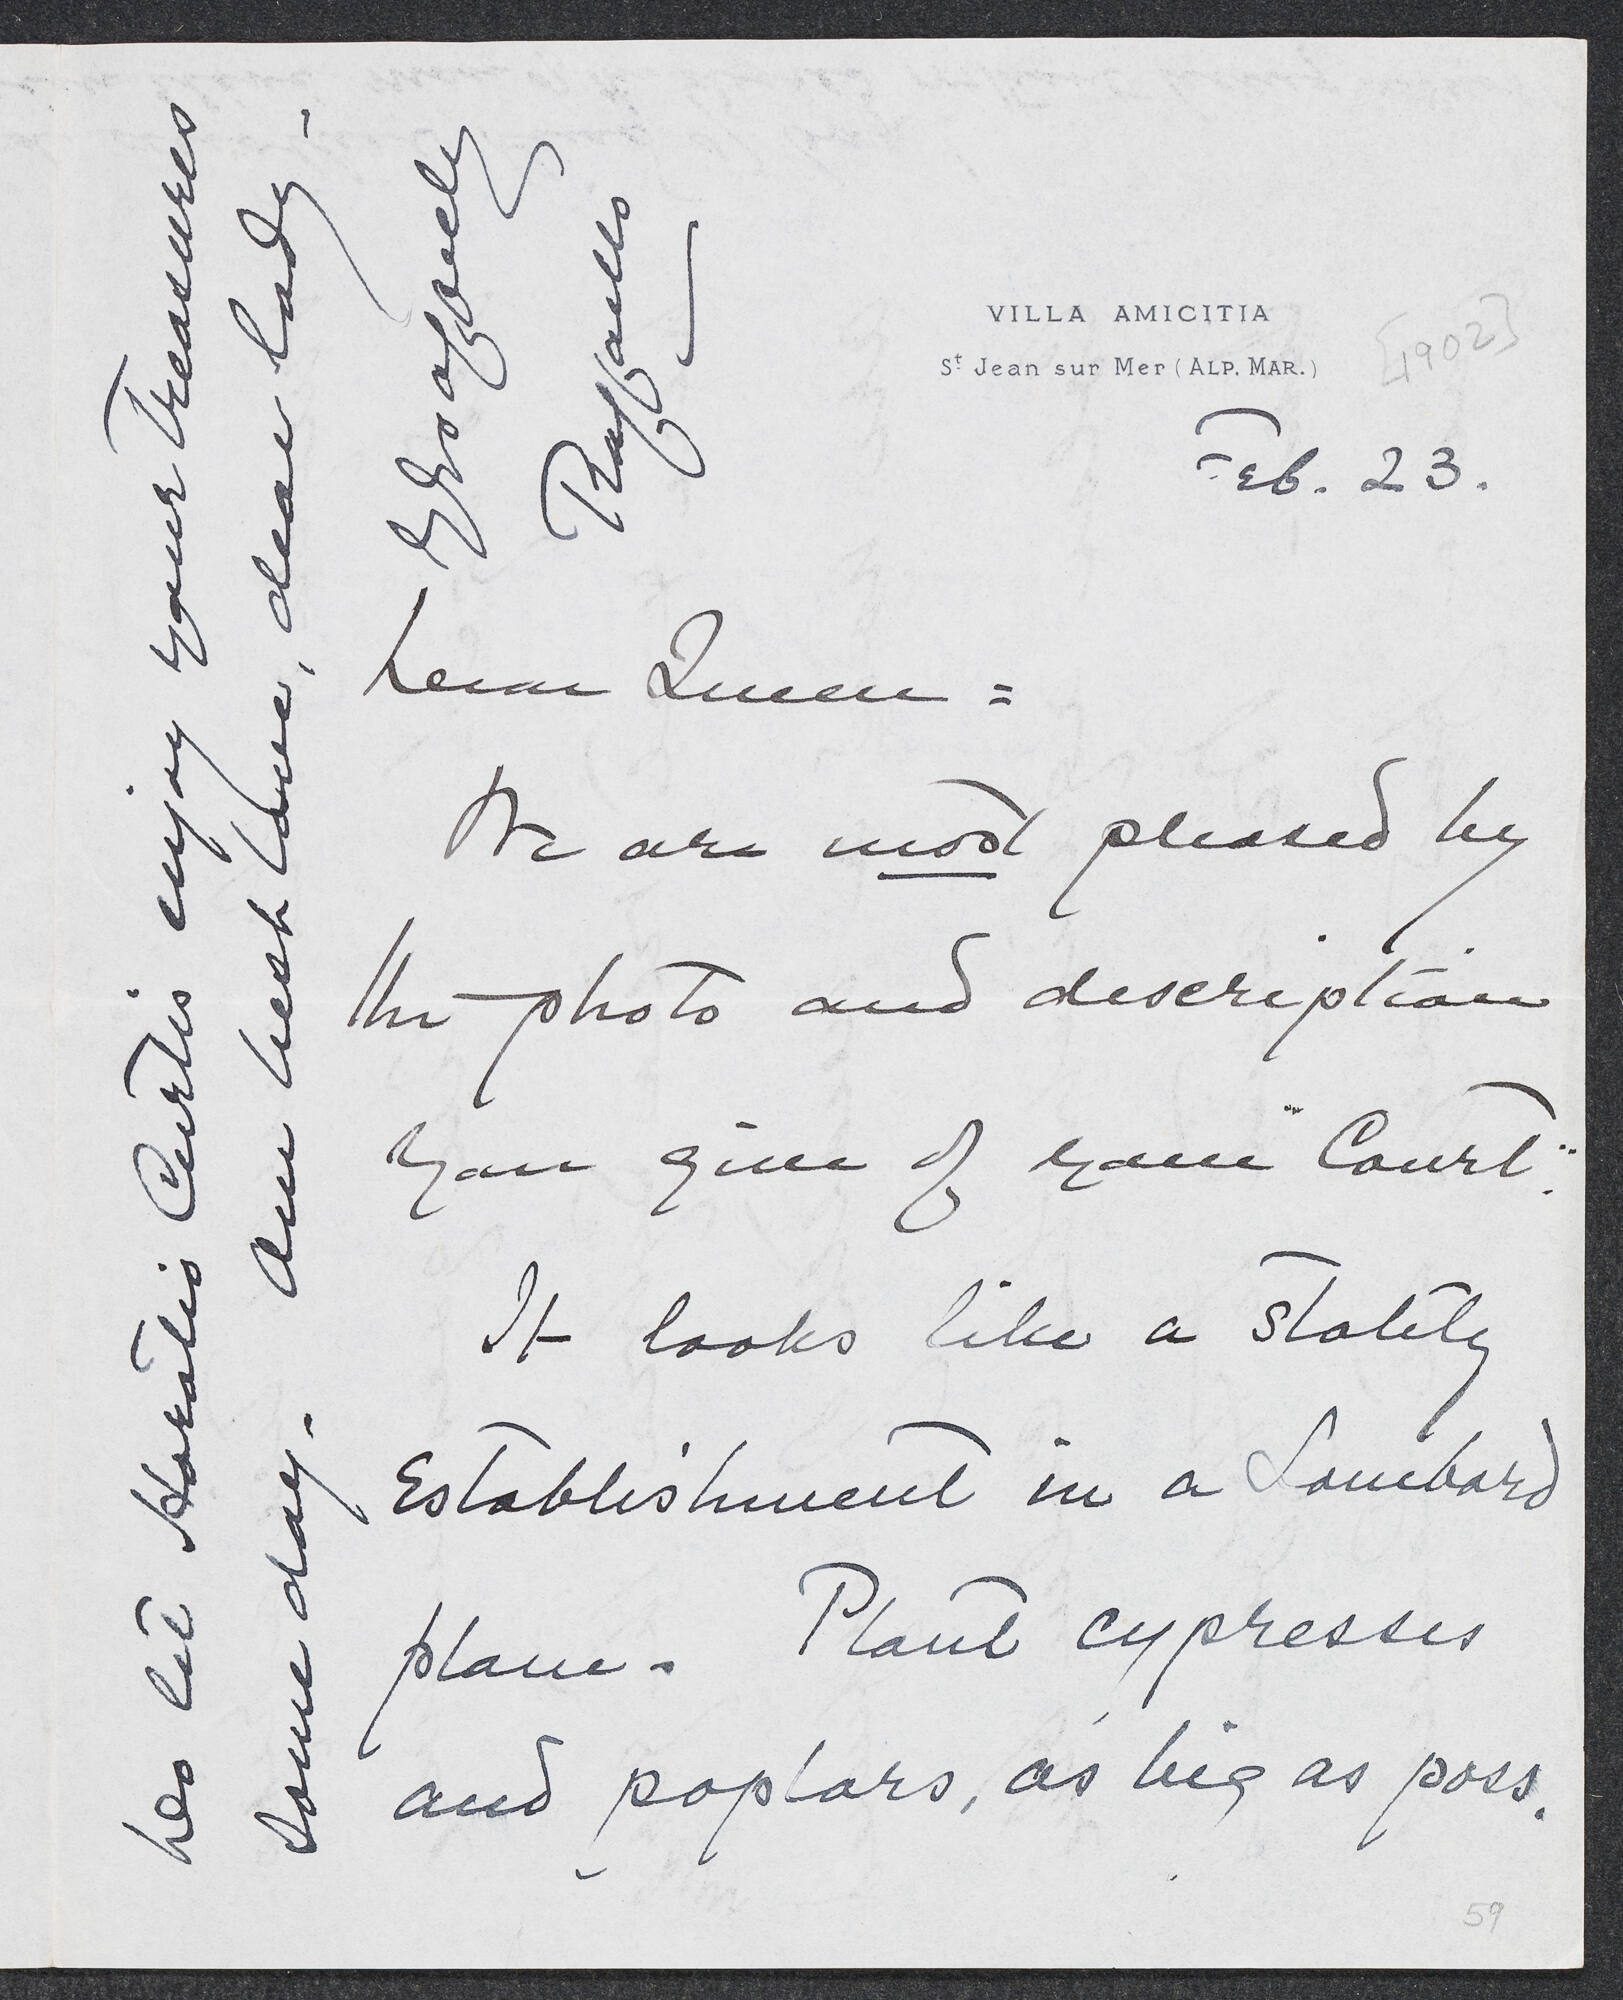 VILLA AMICITIA
St Jean sur Mer (ALP. MAR.)
[1902]
Feb. 23.
Dear Queen =
We are most pleased by
the photo and description
you give of your "Court".
It looks like a stately
Establishment in a Lombard
plane. Plant cypresses
and poplars, as big as poss.
59
Do let Horatio Curtis enjoy your Treasures
some day. Our best love, dear lady -
Yrs affecly
Raffaello